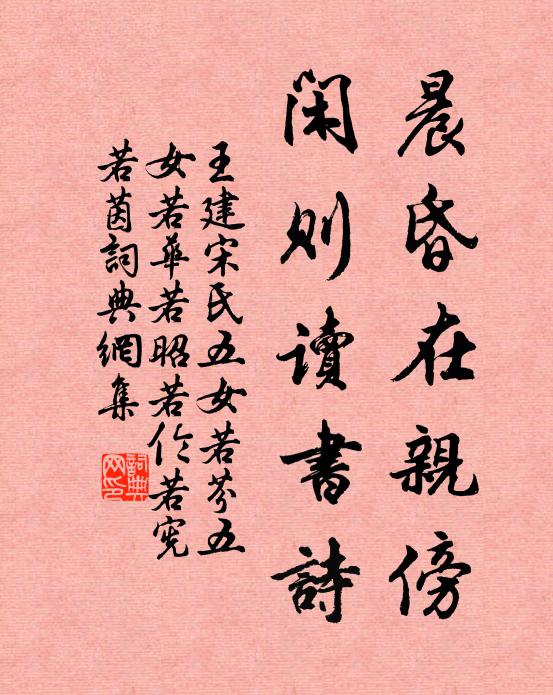 晨昏在親傍
閑則讀書詩
王建宋氏五女若芬五
女若華若昭若伦若宪
若茵詞典網集
詞典网印